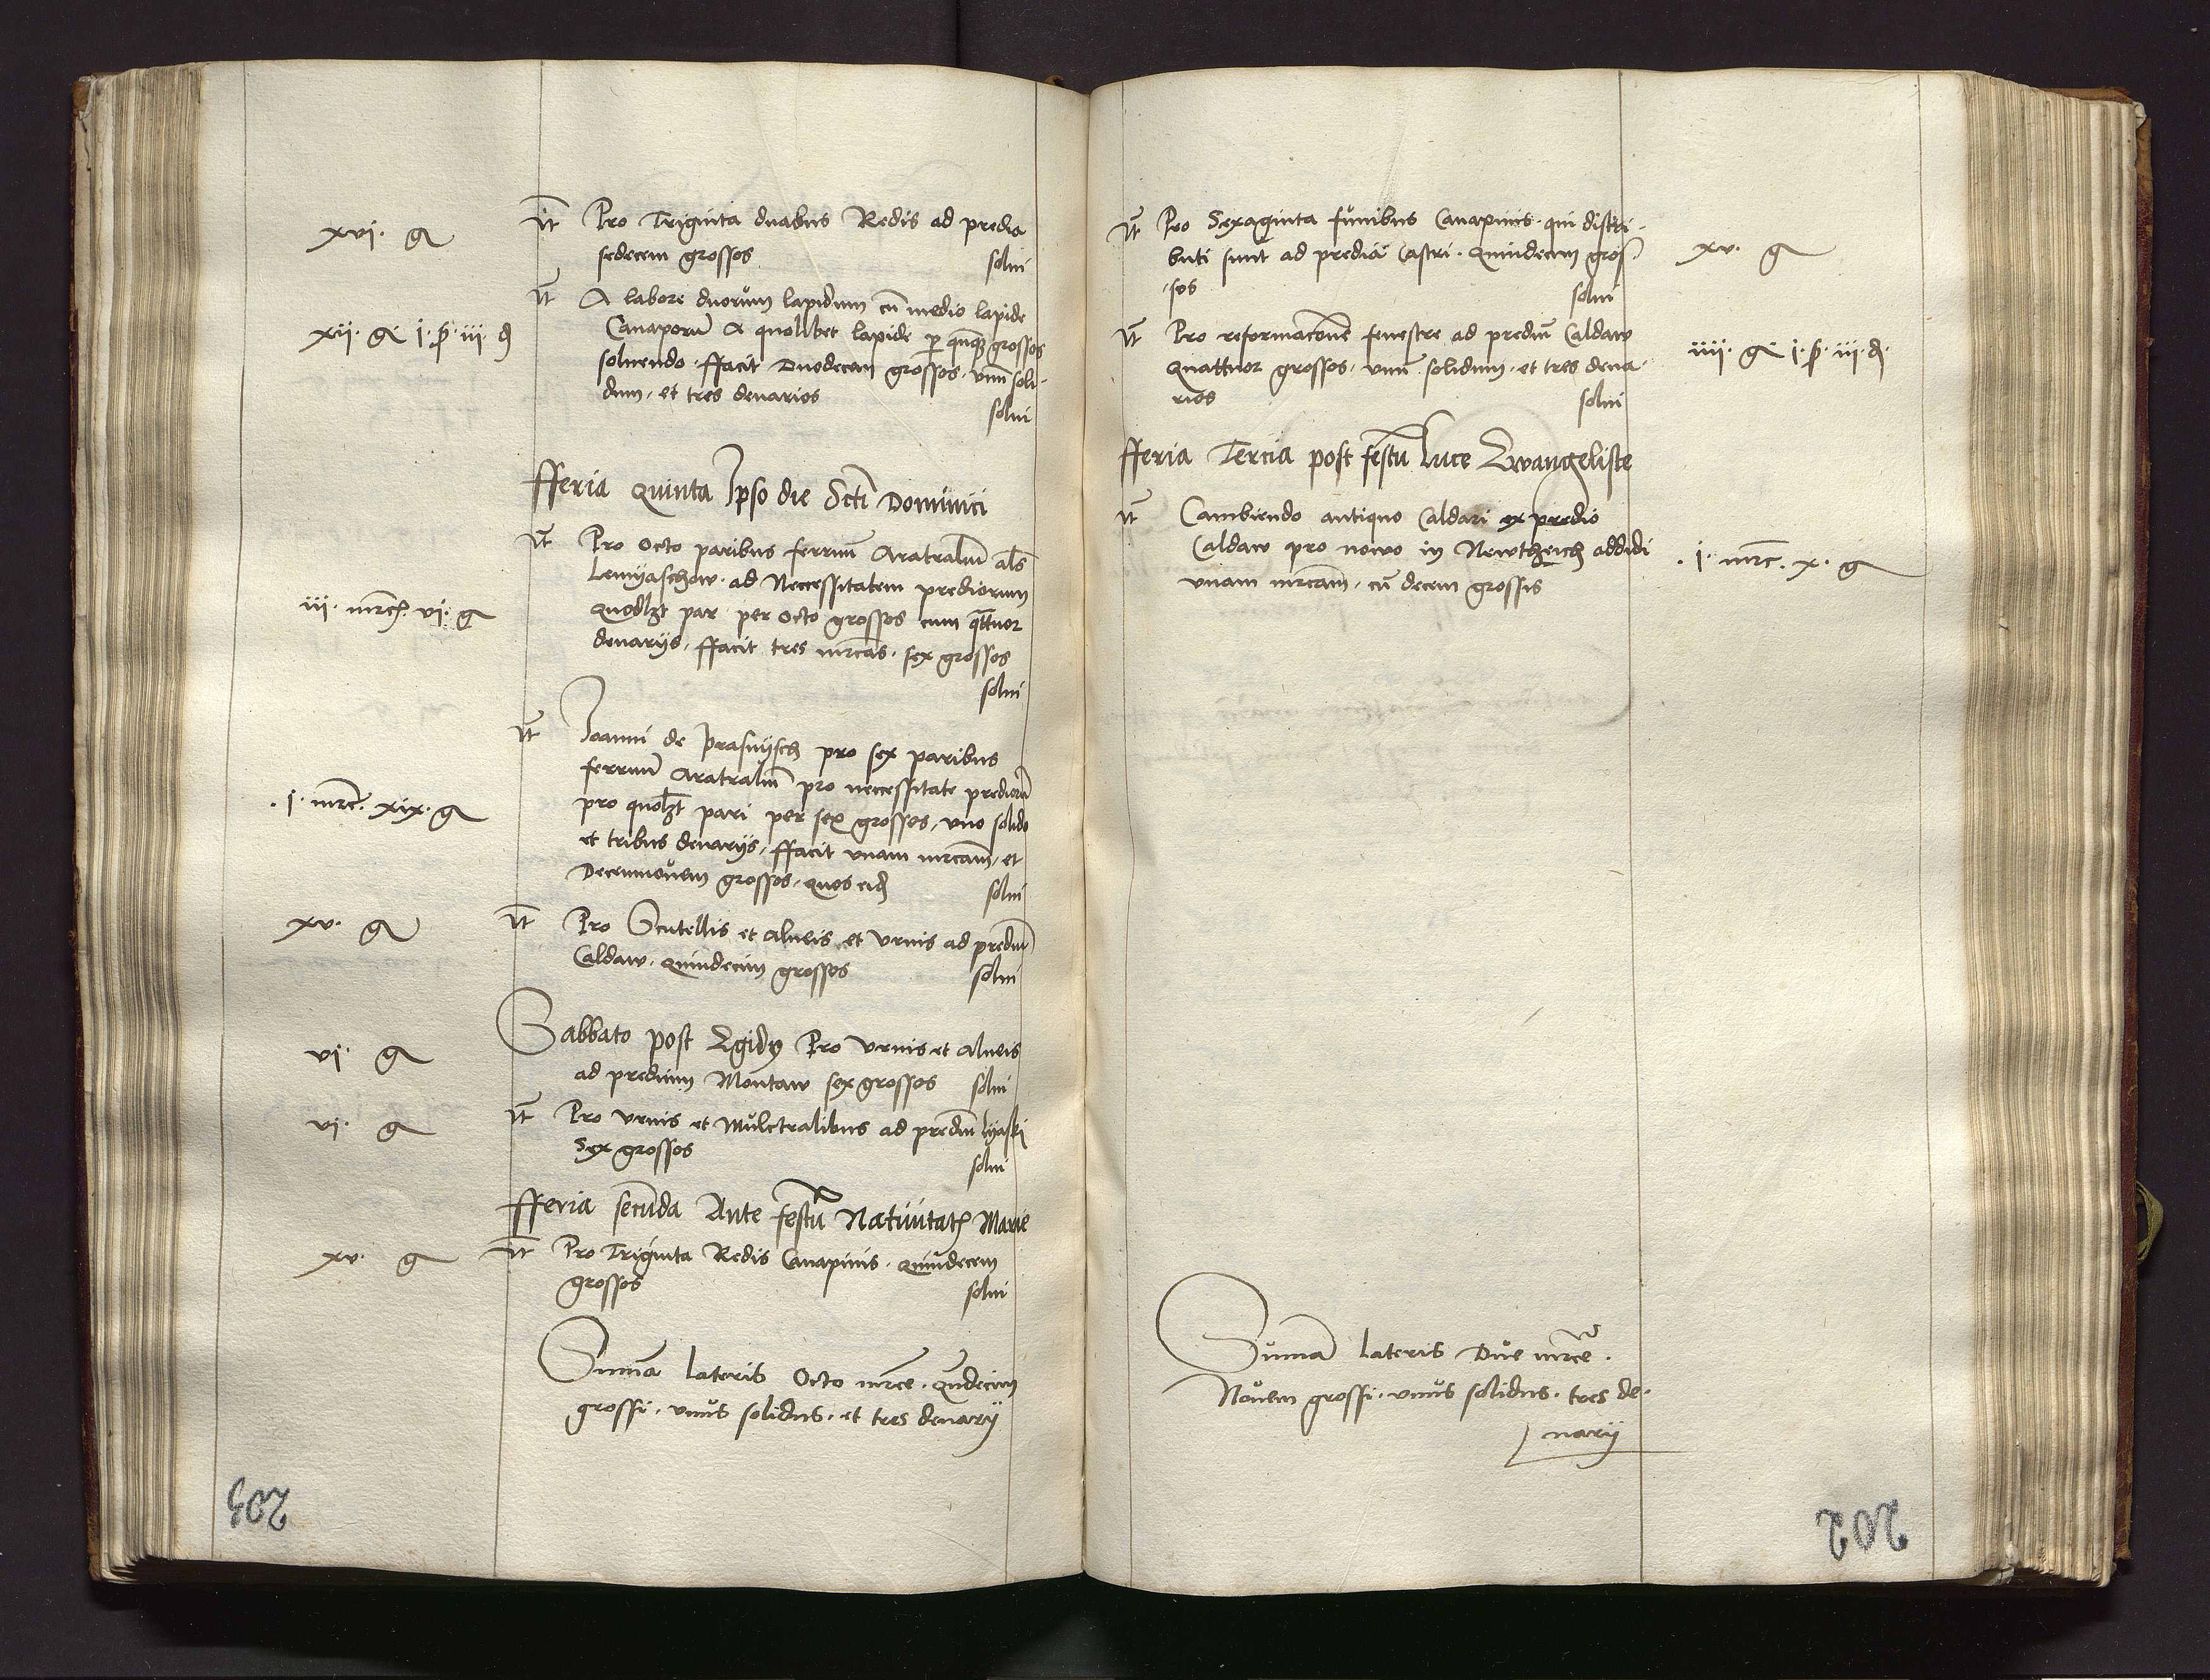 xvi. g
Jt Pro Triginta duabus Redis ad predia
sedecem grossos solui
Jt A labore duorum lapidum cu medio lapide
xii. g. i. ß. iii. d
Canaporu A quolibet lapide p quinq grossos
soluendo. ffacit Duodecem grossos. unu soli-
dum, et tres denarios solui
fferia quinta Ipso die Scti Dominici
Jt Pro Octo paribus ferrum Aratralium als
Lemyaschow. ad Neccessitatem prediorum
iii. mrc. vi. g
Quodlzt par per octo grossos cum qttuor
denarys. ffacit tres mrcas. sex grossos
solui
Jt Joanni de Prasnysch pro sex paribus
ferrum Aratralium pro neccessitate predioru
. i. mrc. xix. g
pro quolzt pari per sex grossos, uno solido
et tribus denarys, ffacit unam mrcam, et
Decemnouem grossos, quos eid solui
xv. g
Jt Pro Scutellis et alueis et Urnis ad prediu
Caldaw. quindecim grossos solui
Sabbato post Egidy Pro Urnis et Alueis
vi. g
ad predium Montaw sex grossos solui
vi. g
Jt Pro urnis et Mulctralibus ad prediu lyaski
Sex grossos solui
fferia secunda Ante festu Natiuitatis Marie
xv. g
Jt Pro Triginta Redis Canapinis. quindecem
grossos solui
Suma lateris Octo mrce. qndecim
grossi. unus solidus. et tres denary
203
Jt Pro Sexaginta funibus Canapinis. qui distri-
buti sunt ad predia Castri. quindecem gros-
xv. g
sos solui
Jt Pro reformacone fenestre ad prediu Caldaw
Quattuor grossos, unu solidum, et tres dena-
iiii. g. i. ß. iii. d.
rios solui
fferia Tercia post festu luce Ewangeliste
Jt Cambiendo antiquo Caldari ex predio
Caldaw pro nowo in Newtheich addidi
. i. mrc. x. g
unam mrcam, cu decem grossis
Suma lateris Due mrce.
Nouem grossi. unus solidus. tres de-
nary
202